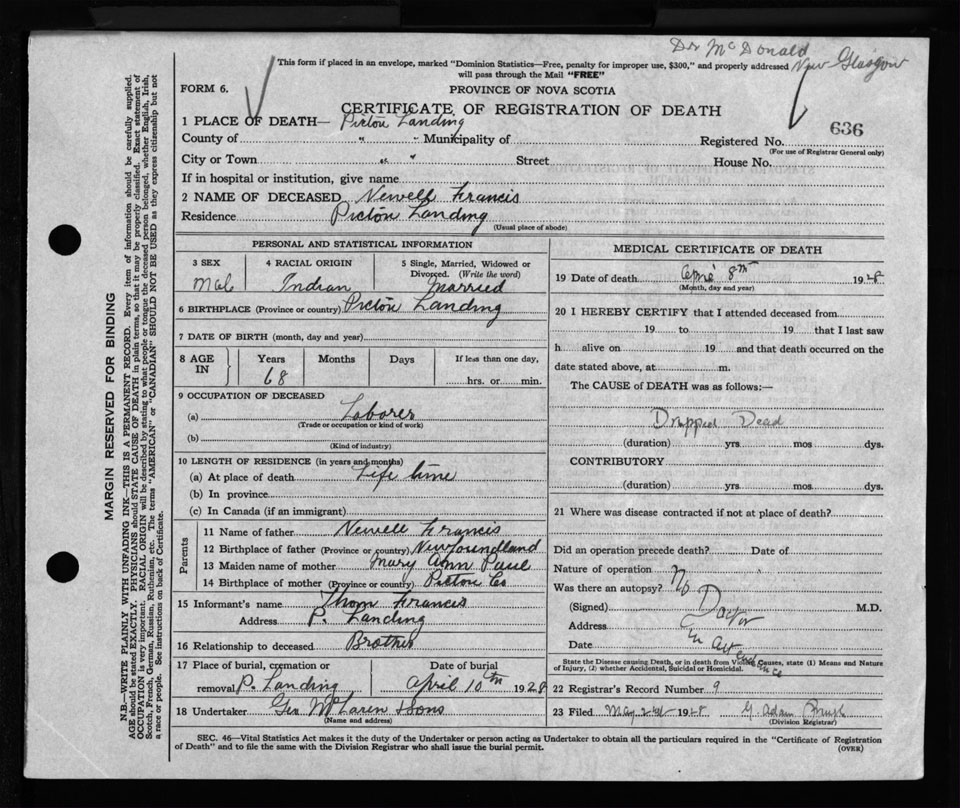 Dr McDonald
New Glasgow
This form if placed in an envelope, marked "Dominion Statistics—Free, penalty for improper use, $300," and properly addressed
will pass through the Mail "FREE"
FORM 6.
PROVINCE OF NOVA SCOTIA
CERTIFICATE OF REGISTRATION OF DEATH
636
1 PLACE OF DEATH— Pictou Landing
County of " " Municipality of Registered No.
(For use of Registrar General only)
City or Town " " Street House No.
If in hospital or institution, give name
2 NAME OF DECEASED Newell Francis
Residence Pictou Landing
(Usual place of abode)
PERSONAL AND STATISTICAL INFORMATION
3 SEX 4 RACIAL ORIGIN 5 Single, Married, Widowed or
Divorced. (Write the word)
Male Indian Married
6 BIRTHPLACE (Province or country) Pictou Landing
7 DATE OF BIRTH (month, day and year)
8 AGE IN Years Months Days If less than one day,
68 hrs. or min.
9 OCCUPATION OF DECEASED
(a) Laborer
(Trade or occupation or kind of work)
(b)
(Kind of industry)
10 LENGTH OF RESIDENCE (in years and months)
(a) At place of death Life time
(b) In province
(c) In Canada (if an immigrant)
Parents
11 Name of father Newell Francis
12 Birthplace of father (Province or country) Newfoundland
13 Maiden name of mother Mary Ann Paul
14 Birthplace of mother (Province or country) Pictou Co
15 Informant's name Thom Francis
Address P. Landing
16 Relationship to deceased Brother
17 Place of burial, cremation or Date of burial
removal P. Landing April 10th 1928
18 Undertaker Geo McLaren & Sons
(Name and address)
MEDICAL CERTIFICATE OF DEATH
19 Date of death 8th 1928
(Month, day and year)
20 I HEREBY CERTIFY that I attended deceased from
19 to 19 that I last saw
h alive on 19 and that death occurred on the
date stated above, at m.
The CAUSE of DEATH was as follows:—
Dropped Dead
(duration) yrs. mos. dys.
CONTRIBUTORY
(duration) yrs. mos. dys.
21 Where was disease contracted if not at place of death?
Did an operation precede death? Date of
Nature of operation
Was there an autopsy? No
(Signed) Doctor M.D.
Address in
Date attendance
State the Disease causing Death, or in death from Violent Causes, state (1) Means and Nature
of Injury, (2) whether Accidental, Suicidal or Homicidal.
22 Registrar's Record Number 9
23 Filed May 2nd 1928 G. Adam
(Division Registrar)
SEC. 46—Vital Statistics Act makes it the duty of the Undertaker or person acting as Undertaker to obtain all the particulars required in the "Certificate of Registration
of Death" and to file the same with the Division Registrar who shall issue the burial permit.
(OVER)
MARGIN RESERVED FOR BINDING
N.B.—WRITE PLAINLY WITH UNFADING INK—THIS IS A PERMANENT RECORD. Every item of information should be carefully supplied.
AGE should be stated EXACTLY. PHYSICIANS should STATE CAUSE OF DEATH in plain terms, so that it may be properly classified. Exact statement of
OCCUPATION is very important. RACIAL ORIGIN will be described by stating to what people or tongue the deceased person belonged, whether English, Irish,
Scotch, French, German, Russian, Ruthenian, etc. The terms "AMERICAN" or "CANADIAN" SHOULD NOT BE USED as they express citizenship but not
a race or people. See instructions on back of Certificate.